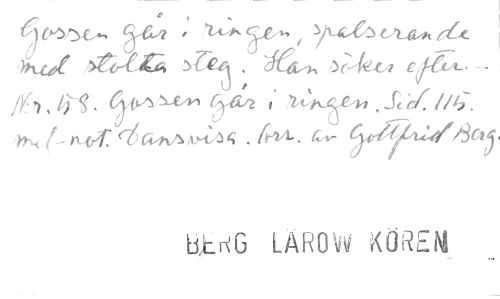 Gossen går i ringen, spalserande
med stolta steg. Han söker efter. –
N.r. 158. Gossen går i ringen. Sid. 115.
mel-not. Dansvisa. arr. av Gottfrid Berg.
BERG LÄROW KÖREN